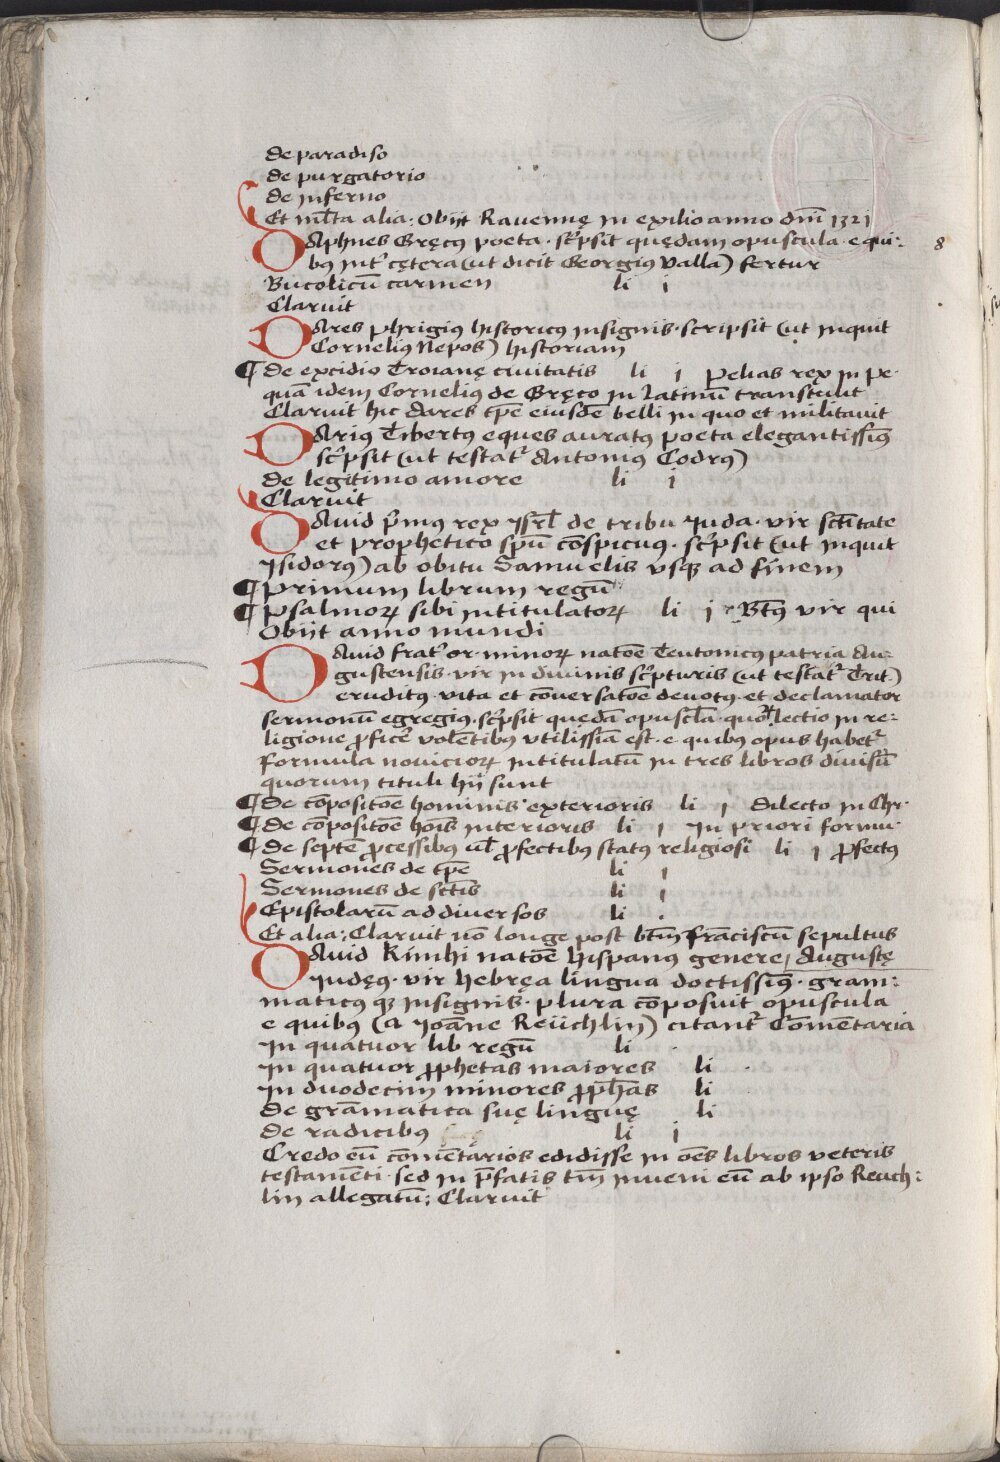 de paradiso
de purgatorio
de inferno
Et ml̄ta alia. Obijt Ravennę in exilio anno dnī 1321
DAphnes Gręcꝰ poeta. sc̄psit quędam opuscula. e qui- 8
bꝰ int̄ cętera (ut dicit Georgiꝰ Valla) fertur
Bucolicū carmen li i
Claruit
DAres phrigiꝰ historicꝰ insignis. scripsit (ut inquit
Corneliꝰ Nepos) historiam
¶ de excidio Troianę civitatis li i Pelias rex in pe.
quā idem Corneliꝰ de Gręco in latinū transtulit
Claruit hic dares tp̄e eiusdē belli in quo et militavit
DAriꝰ Tibertꝰ eques auratꝰ poeta elegantissimꝰ
sc̄psit (ut testat᷑ Antoniꝰ Codrꝰ)
de legitimo amore li i
Claruit
DAvid p̄mus rex Isrl̄ de tribu Iuda. vir sctītate
et prophetico spū cōspicuus. sc̄psit (ut inquit
Isidorꝰ) ab obitu Samuelis vsqꝫ ad finem
¶ Primum librum regū
¶ Psalmoꝝ sibi intitulatoꝝ li i Bt̄ꝰ vir qui
Obijt anno mundi
DAvid frat᷑ or. minoꝝ natōe Teutonicꝰ patria Au-
gustensis. vir in divinis sc̄pturis (ut testat᷑ Trit.)
eruditꝰ. vita et cōversatōe devotꝰ. et declamator
sermonū egregiꝰ. sc̄psit quędā opuscl̄a. quoꝝ lectio in re-
ligione ꝓficē volētibꝰ vtilissīa est. e quibꝰ opus habet᷑
formula novicioꝝ intitulatū in tres libros divisū
quorum tituli hij sunt
¶ de cōpositōe hominis exterioris li i dilecto in Chr.
¶ de cōpositōe hoīs interioris li i In priori formu.
¶ de septē ꝓcessibꝰ vl̄ ꝓfectibꝰ statꝰ religiosi li i ꝓfectꝰ
Sermones de tp̄e li i
Sermones de sctīs li i
Epistolarū ad diversos li .
Et alia: Claruit nō longe post btm̄ frāciscū sepultus
Augustę
DAvid Kimhi natōe hispanus genere
Iudęꝰ. vir hebręa lingua doctissimꝰ. gram-
maticꝰ qꝫ insignis. plura cōposuit opuscula
e quibꝰ (a Ioāne Reüchlin) citant᷑ Cōmētaria
In quatuor lib regū li .
In quatuor ꝓphetas maiores li .
In duodecim minores ꝓph̄as li
de grāmatica suę linguę li
de radicibꝰ li i
Credo eū cōmētarios edidisse in oēs libros veteris
testamēti. sed in p̄fatis tm̄ inveni eū ab ipso Reuch-
lin allegatū: Claruit